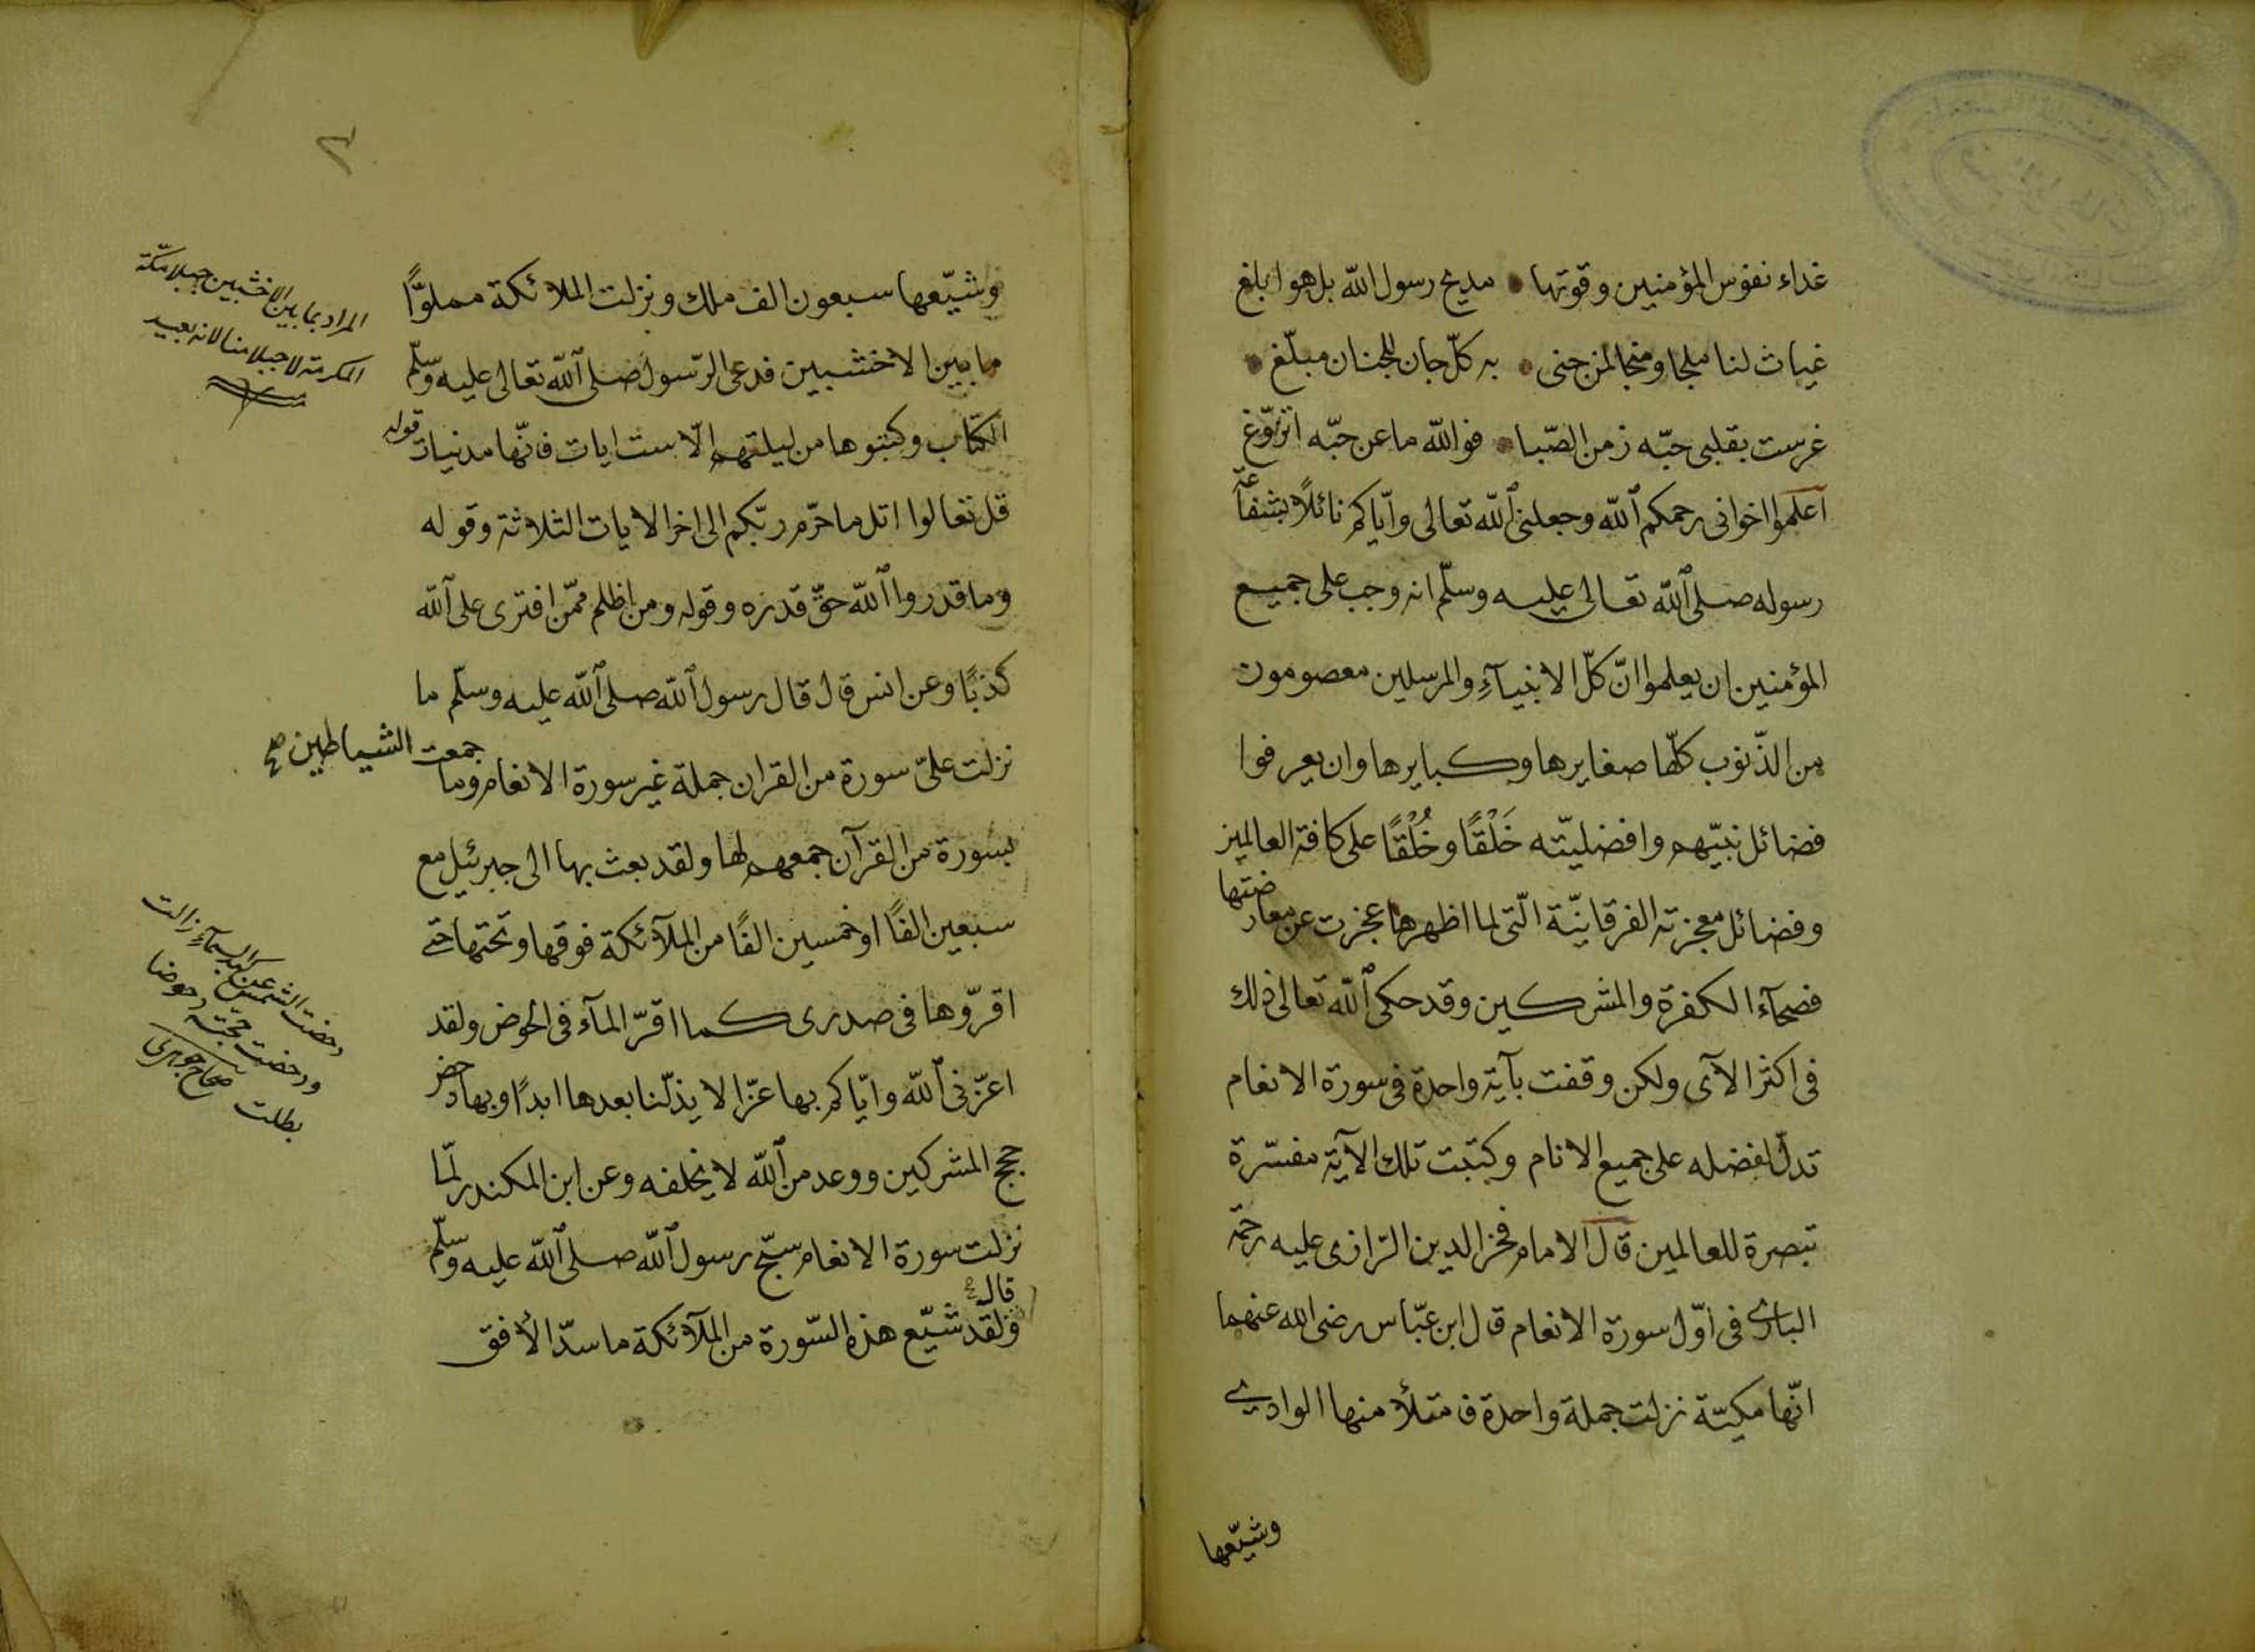 غذاء نفوس المؤمنين وقوتها • مديح رسول الله بل هو ابلغ
غياث لنا ملجا ومنجا لمن جنى • به كل جان للجنان مبلّغ •
غرست بقلبى حبّه زمن الصّبا • فوالله ما عن حبّه اتزوّغ
اعلموا اخوانى رحمكم الله وجعلنى الله تعالى وايّاكم نائلاً بشفاعة
رسوله صلى الله تعالى عليه وسلّم انه وجب على جميع
المؤمنين ان يعلموا انّ كلّ الانبيآءِ والمرسلين معصومون
من الذّنوب كلّها صغايرها وكبايرها وان يعرفوا
فضائل نبيّهم وافضليّته خَلْقًا وخُلْقًا على كافة العالمين
وفضائل معجزته الفرقانيّة الّتى لما اظهرها عجزت عن معارضتها
فصحآء الكفرة والمشركين وقد حكى الله تعالى ذلك
فى اكثر الآى ولكن وقفت بآية واحدة فى سورة الانعام
تدلّ لفضله على جميع الانام وكتبت تلك الآية مفسّرة
تبصرة للعالمين قال الامام فخر الدين الرّازى عليه رحمة
البارى فى اوّل سورة الانعام قال ابن عبّاس رضى الله عنهما
انّها مكيّة نزلت جملة واحدة فامتلأ منها الوادى
وشيّعها
٢
وشيّعها سبعون الف ملك ونزلت الملائكة مملوّاً
ما بين الاخشبين فدعى الرّسول صلى الله تعالى عليه وسلّم
الكتّاب وكتبوها من ليلتهم الّا ست ايات فانّها مدنيات قوله
قل تعالوا اتل ما حرّم ربّكم الى اخر الايات الثلاثة وقوله
وما قدروا الله حقّ قدره وقوله ومن اظلم ممّن افترى على الله
كذبًا وعن انس قال قال رسول الله صلى الله عليه وسلّم ما
نزلت علىّ سورة من القران جملة غير سورة الانعام وما جمعت الشياطين صح
بسورة من القرآن جمعهم لها ولقد بعث بها الى جبرئيل مع
سبعين الفًا او خمسين الفًا من الملآئكة فوقها وتحتها حتى
اقرّوها فى صدرى كما اقرّ المآء فى الحوض ولقد
اعزّنى الله وايّاكم بها عزّا لا يذلّنا بعدها ابدًا وبها دحض
حجج المشركين ووعد من الله لا يخلفه وعن ابن المكندر لمّا
نزلت سورة الانعام سبّح رسول الله صلى الله عليه وسلّم
قال
ولقد شيّع هذه السّورة من الملآئكة ما سدّ الأفق
المراد بما بين الاخشبين جبلا مكّة
المكرمة لا جبلا منا لانه بعيد
دحضت الشمس عن كبد السمآءِ زالت
ودحضت حجّته دحوضا
بطلت صحاح جوهرى